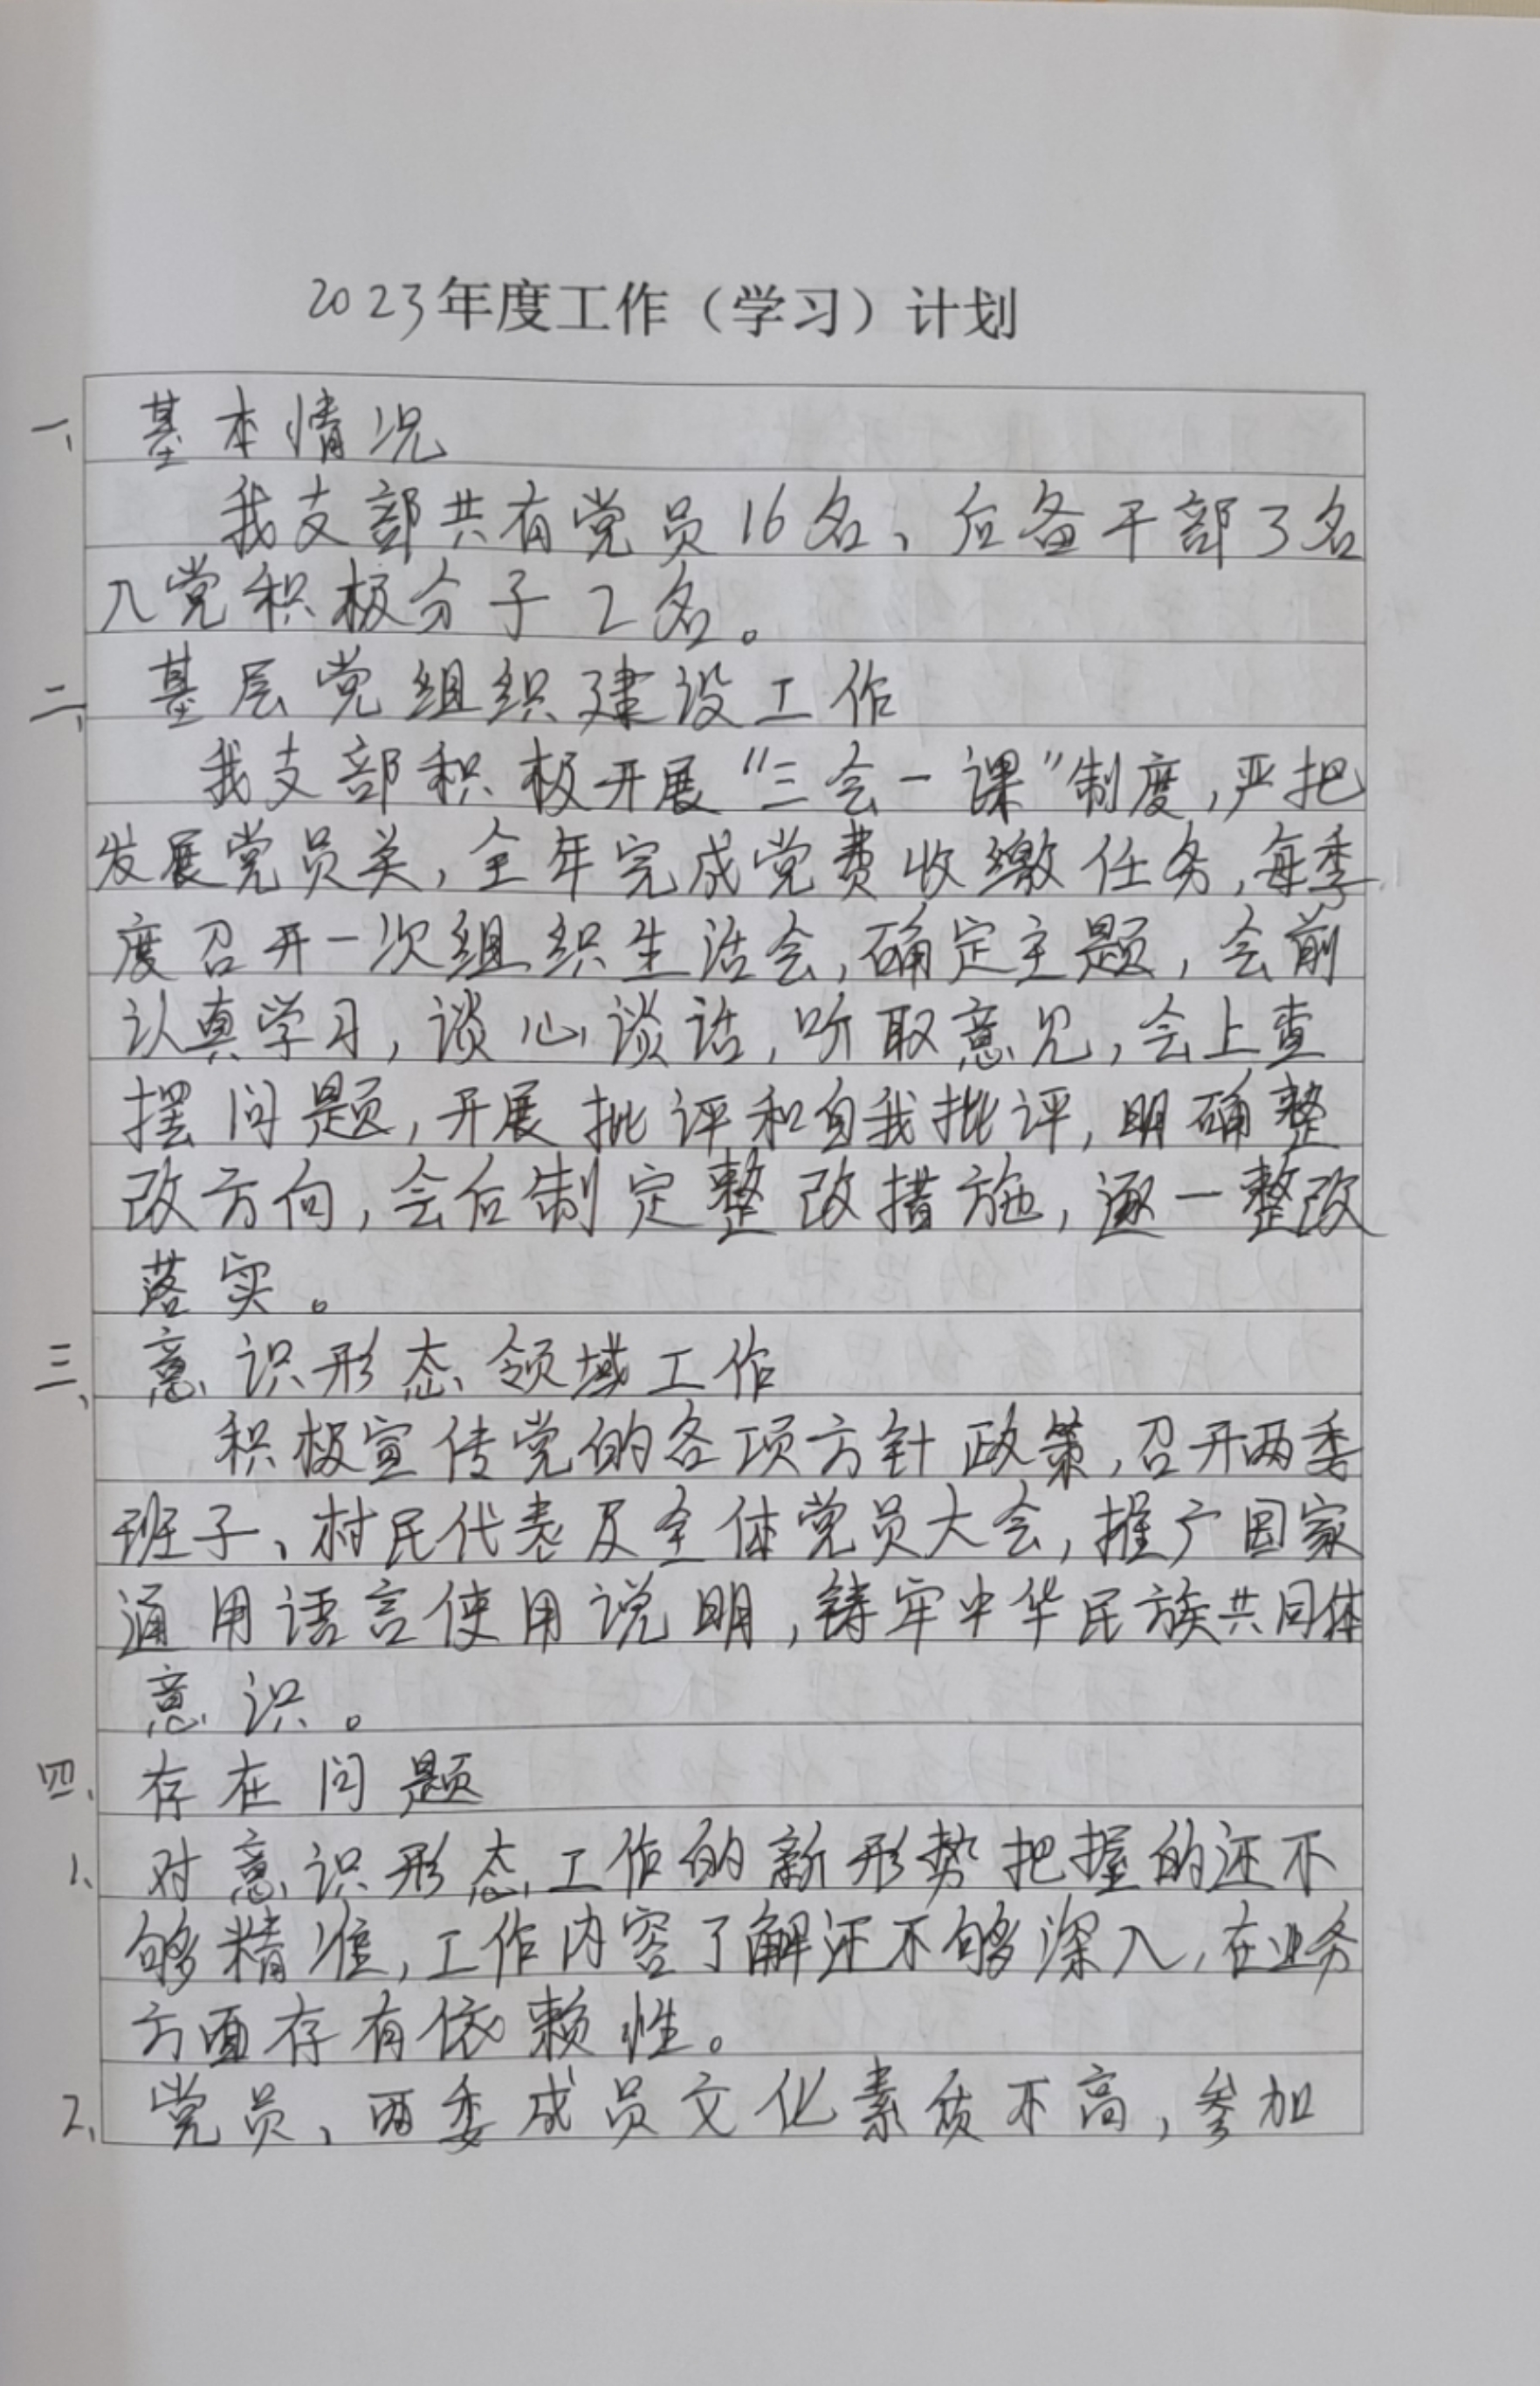 2023年度工作（学习）计划
一、基本情况
我支部共有党员16名、后备干部3名
入党积极分子2名。
二、基层党组织建设工作
我支部积极开展“三会一课”制度,严把
发展党员关,全年完成党费收缴任务,每季
度召开一次组织生活会,确定主题,会前
认真学习,谈心谈话,听取意见,会上查
摆问题,开展批评和自我批评,明确整
改方向,会后制定整改措施,逐一整改
落实。
三、意识形态领域工作
积极宣传党的各项方针政策,召开两委
班子、村民代表及全体党员大会,推广国家
通用语言使用说明,铸牢中华民族共同体
意识。
四、存在问题
1、对意识形态工作的新形势把握的还不
够精准,工作内容了解还不够深入,在业务
方面存有依赖性。
2、党员、两委成员文化素质不高,参加